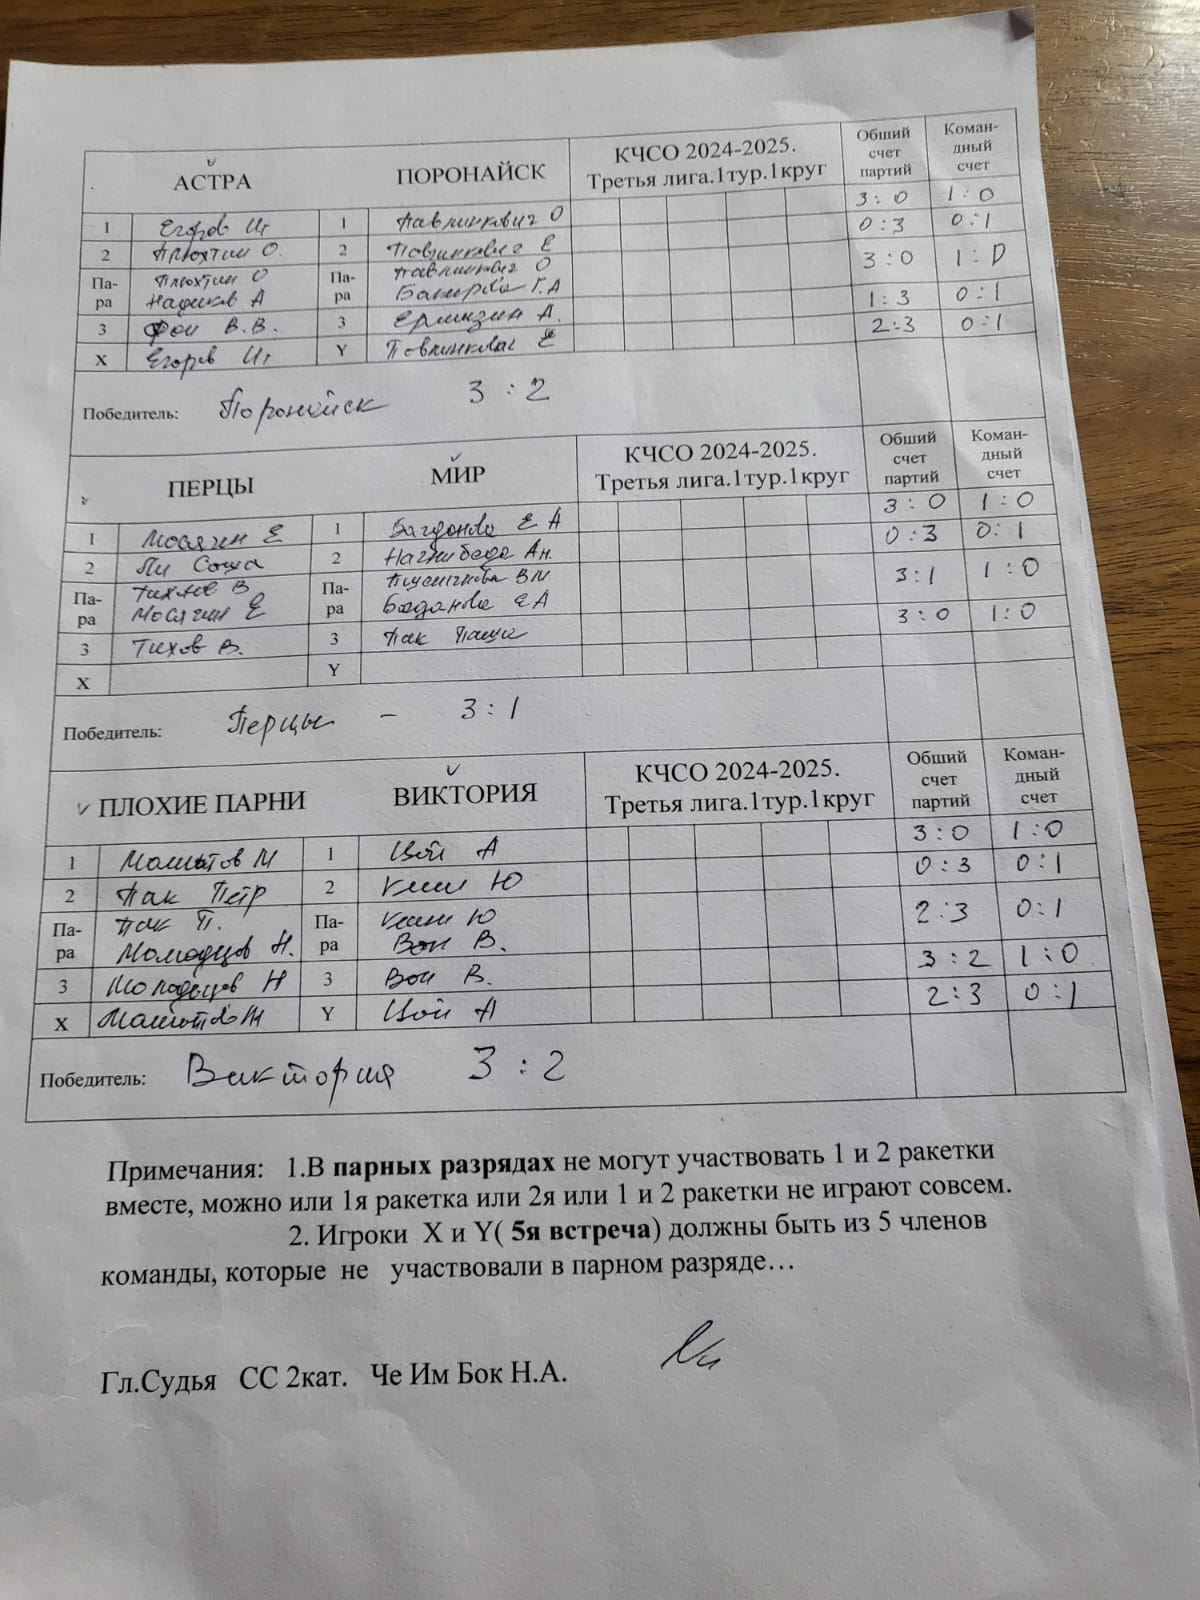 АСТРА ПОРОНАЙСК КЧСО 2024-2025. Третья лига.1тур.1круг Обший счет партий Коман-дный счет
3:0 1:0
1 Егоров Иг 1 Павлинкович О 0:3 0:1
2 Плюхтин О. 2 Павлинкович Е
Па-ра Плюхтин О Па-ра Павлинкович О 3:0 1:0
А Г.А
3 В.В. 3 А. 1:3 0:1
X Егоров Иг Y Павлинкович Е 2:3 0:1
Победитель: Поронайск 3:2
ПЕРЦЫ МИР КЧСО 2024-2025. Третья лига.1тур.1круг Обший счет партий Коман-дный счет
3:0 1:0
1 Мосягин Е 1 Богданова Е А 0:3 0:1
2 Ли Саша 2 Нагнибеда Ан.
Па-ра Тихов В Па-ра ВМ 3:1 1:0
Мосягин Е Богданова ЕА
3 Тихов В. 3 Пак Паша 3:0 1:0
X Y
Победитель: Перцы – 3:1
ПЛОХИЕ ПАРНИ ВИКТОРИЯ КЧСО 2024-2025. Третья лига.1тур.1круг Обший счет партий Коман-дный счет
3:0 1:0
1 М 1 Цой А 0:3 0:1
2 Пак Петр 2 Ким Ю
Па-ра Пак П. Па-ра Ким Ю 2:3 0:1
Молодцов Н. Вон В.
3 Молодцов Н 3 Вон В. 3:2 1:0
X М Y Цой А 2:3 0:1
Победитель: Виктория 3:2
Примечания: 1.В парных разрядах не могут участвовать 1 и 2 ракетки
вместе, можно или 1я ракетка или 2я или 1 и 2 ракетки не играют совсем.
2. Игроки X и Y( 5я встреча) должны быть из 5 членов
команды, которые не участвовали в парном разряде…
Гл.Судья СС 2кат. Че Им Бок Н.А.